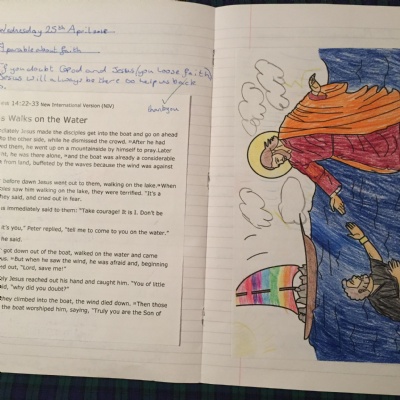 Wednesday 25th April
A parable about faith
if you doubt God and Jesus (you loose faith)
Jesus will always be there to help us back
Thankyou
14:22-33 New International Version (NIV)
s Walks on the Water
diately Jesus made the disciples get into the boat and go on ahead
to the other side, while he dismissed the crowd. After he had
them, he went up on a mountainside by himself to pray. Later
he was there alone, and the boat was already a considerable
from land, buffeted by the waves because the wind was against
before dawn Jesus went out to them, walking on the lake. When
ples saw him walking on the lake, they were terrified. "It's a
they said, and cried out in fear.
s immediately said to them: "Take courage! It is I. Don't be
it's you," Peter replied, "tell me to come to you on the water."
he said.
got down out of the boat, walked on the water and came
us. But when he saw the wind, he was afraid and, beginning
ed out, "Lord, save me!"
ely Jesus reached out his hand and caught him. "You of little
aid, "why did you doubt?"
they climbed into the boat, the wind died down. Then those
the boat worshiped him, saying, "Truly you are the Son of